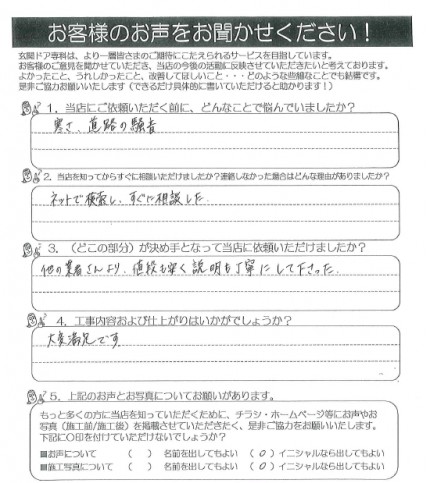 お客様のお声をお聞かせください！
玄関ドア専科は、より一層皆さまのご期待にこたえられるサービスを目指しています。
お客様のご意見を聞かせていただき、当店の今後の活動に反映させていただきたいと考えております。
よかったこと、うれしかったこと、改善してほしいこと・・・どのような些細なことでも結構です。
是非ご協力お願いいたします（できるだけ具体的に書いていただけると助かります！）
1．当店にご依頼いただく前に、どんなことで悩んでいましたか？
寒さ、道路の騒音
2．当店を知ってからすぐに相談いただけましたか？連絡しなかった場合はどんな理由がありましたか？
ネットで検索し、すぐに相談した。
3．（どこの部分）が決め手となって当店に依頼いただけましたか？
他の業者さんより、値段も安く説明も丁寧にして下さった。
4．工事内容および仕上がりはいかがでしょうか？
大変満足です
5．上記のお声とお写真についてお願いがあります。
もっと多くの方に当店を知っていただくために、チラシ・ホームページ等にお声やお
写真（施工前/施工後）を掲載させていただきたく、是非ご協力をお願いいたします。
下記に〇印を付けていただけないでしょうか？
■お声について （ ） 名前を出してもよい （○）イニシャルなら出してもよい
■施工写真について （ ） 名前を出してもよい （○）イニシャルなら出してもよい